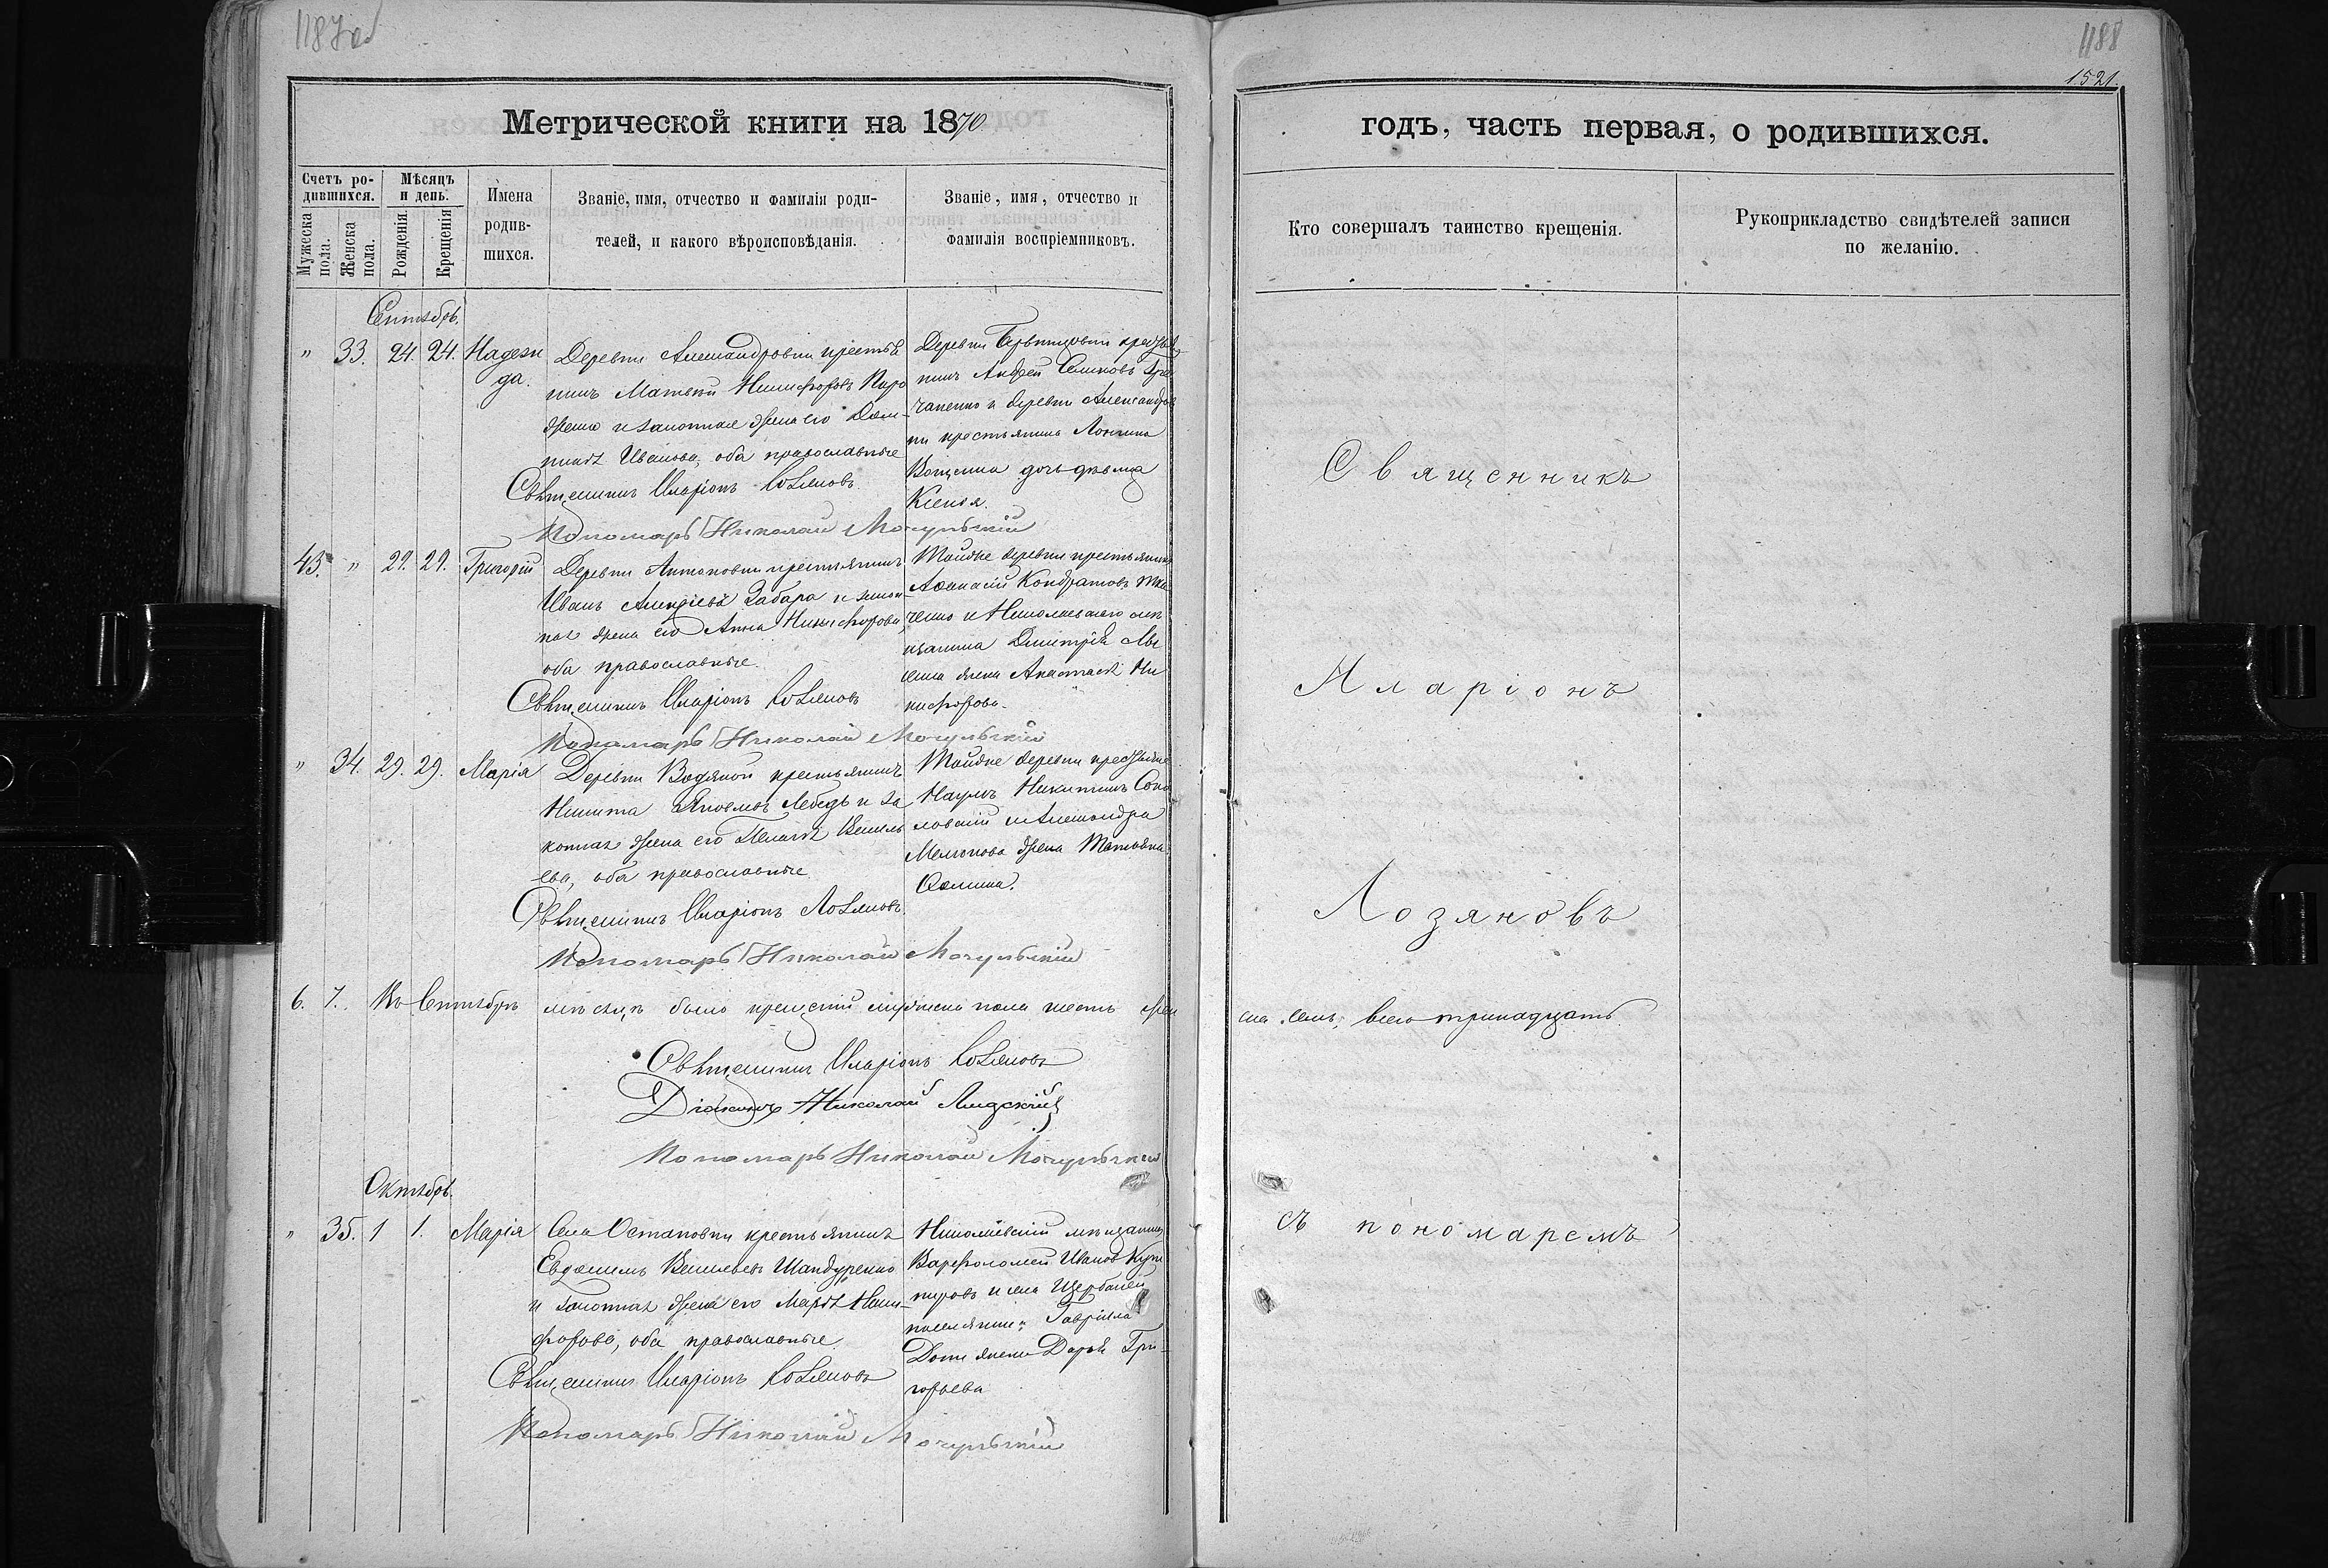 1187об
1188
1521.
Метрической книги на 1870
годъ, часть первая, о родившихся.
Счетъ родившихся.
Мужеска пола.
Женска пола.
Мѣсяцъ и день.
Рожденія.
Крещенія
Имена
родив-
шихся.
Званіе, имя, отчество и фамилія роди-
телей, и какого вѣроисповѣданія.
Званіе, имя, отчество и
фамилія воспріемниковъ.
Кто совершалъ таинство крещенія.
Рукоприкладство свидѣтелей записи
по желанію.
Сентябрь.
" 33. 24. 24. Надеж
да.
Деревни Александровки крестья
нинъ Матвей Никифоровъ
жена его Дом-
Иванова, оба православные
Священникъ Иларіонъ Лозяновъ
Пономарь Николай Мочульскій
Деревни
нинъ Андрей
и деревни Александров
ки крестьянина
дочь девица
Ксенія.
43. " 29. 29. Григорій
Деревни Антоновки крестьянинъ
Иванъ Алексѣевъ Забара и закон
ная жена его Анна Никифорова,
оба православные.
Священникъ Иларіонъ Лозяновъ
Пономарь Николай Мочульскій
Тойже деревни крестьянинъ
Афанасій Кондратовъ Тка
ченко и Николаевскаго мѣ
щанина Димитрія
жена Анастасія Ни
кифорова.
" 34. 29. 29. Марія
Деревни Водяной крестьянинъ
Никита Лебедь и за
конная жена его Пелагія Василь
ева, оба православные.
Священникъ Иларіонъ Лозяновъ.
Пономарь Николай Мочульскій
Тойже деревни
Наумъ Никитинъ Соко
ловскій и Александра
жена Татьяна
6. 7. Въ Сентябрѣ мѣсяцѣ было крещеній мужеска пола шесть жен
ска семь, всего тринадцать.
Священникъ Иларіонъ Лозяновъ
Діаконъ Николай Лидскій
Пономарь Николай Мочульскій
Октябрь.
" 35. 1 1. Марія
Села Остаповки крестьянинъ
Евфимій Васильевъ Шандуренко
и законная жена его Марія Ники-
форова, оба православные.
Священникъ Иларіонъ Лозяновъ
Пономарь Николай Мочульскій
Николаевскій мѣщанинъ
Варфоломей Ивановъ
и села Щербаней
Гавріила
жена Дарья Гри-
горьева
Священникъ
Иларіонъ
Лозяновъ
съ пономаремъ